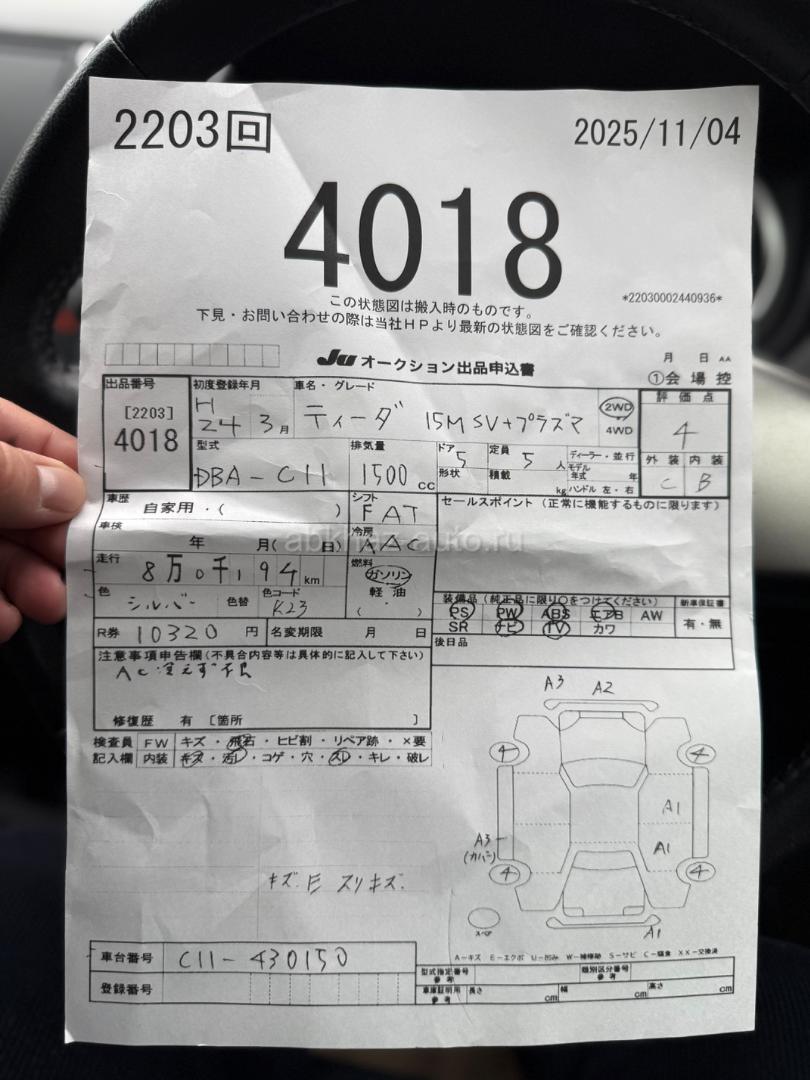 2203回 2025/11/04
4018
*22030002440936*
この状態図は搬入時のものです。
下見・お問い合わせの際は当社HPより最新の状態図をご確認ください。
月 日 AA
JU オークション出品申込書 ①会場控
出品番号 初度登録年月 車名・グレード 評価点
[2203] H 2WD
4018 24 3月 ティーダ 15M SV+プラズマ 4WD 4
型式 排気量 ドア 定員 ディーラー・並行 外装 内装
DBA-C11 1500cc 5 5人 モデル年式 年 C B
形状 積載 kg ハンドル 左・右
車歴 自家用・( ) シフト FAT セールスポイント (正常に機能するものに限ります)
車検 年 月( 日) 冷房 AAC
abkhaz-auto.ru
走行 8万0千194km 燃料 ガソリン
軽油
( )
色 シルバー 色替 色コード K23
装備品 (純正品に限り○をつけてください) 新車保証書
PS PW ABS エアB AW 有・無
SR ナビ TV カワ
R券 10320円 名変期限 月 日 後日品
注意事項申告欄 (不具合内容等は具体的に記入して下さい)
AC冷えず不良
修復歴 有 [箇所 ]
検査員 FW キズ・飛石・ヒビ割・リペア跡・×要
記入欄 内装 キズ・汚レ・コゲ・穴・スレ・キレ・破レ
A3 A2
4 4
A1
A3 A1
(カバー)
4 4
キズ. E スリキズ.
スペア A1
A-キズ E-エクボ U-凹み W-補修跡 S-サビ C-腐食 XX-交換済
車台番号 C11-430150
登録番号
型式指定番号 参考 類別区分番号 参考
車庫証明用 参考 長さ cm 幅 cm 高さ cm